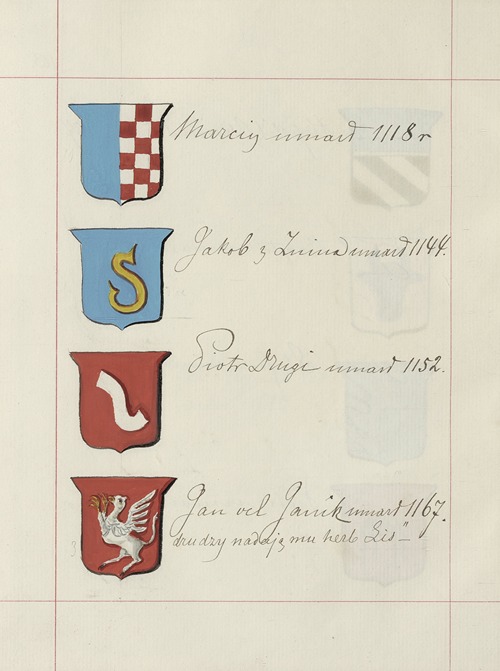 Marcin umarł 1118 r
Jakob z Żnina umarł 1144.
Piotr Drugi umarł 1152.
Jan vel Janik umarł 1167.
drudzy nadają mu herb Lis"